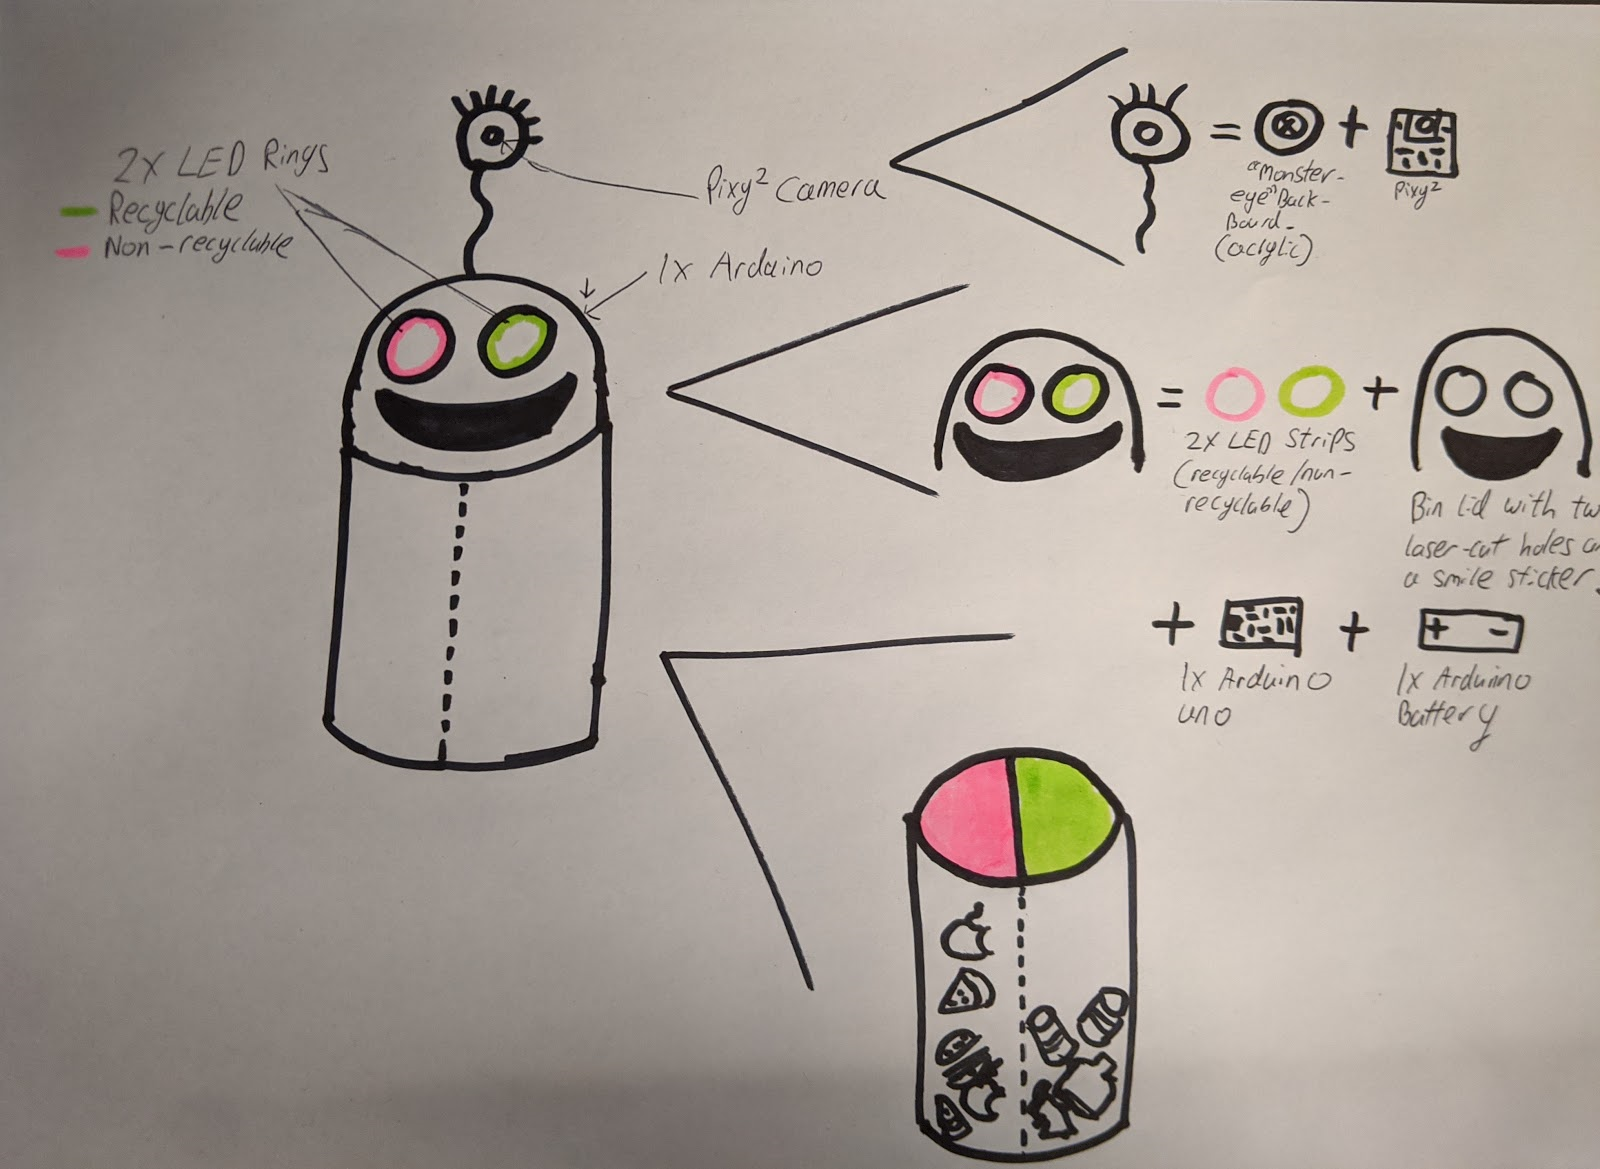 2x LED Rings
Recyclable
Non-recyclable
Pixy² Camera
1x Arduino
=
+
"Monster-
eye" Back-
Board-
(acrylic)
Pixy²
=
+
2x LED Strips
(recyclable/non-
recyclable)
Bin Lid with tw
laser-cut holes
a smile sticker.
+
+
+ -
1x Arduino
uno
1x Arduino
Battery